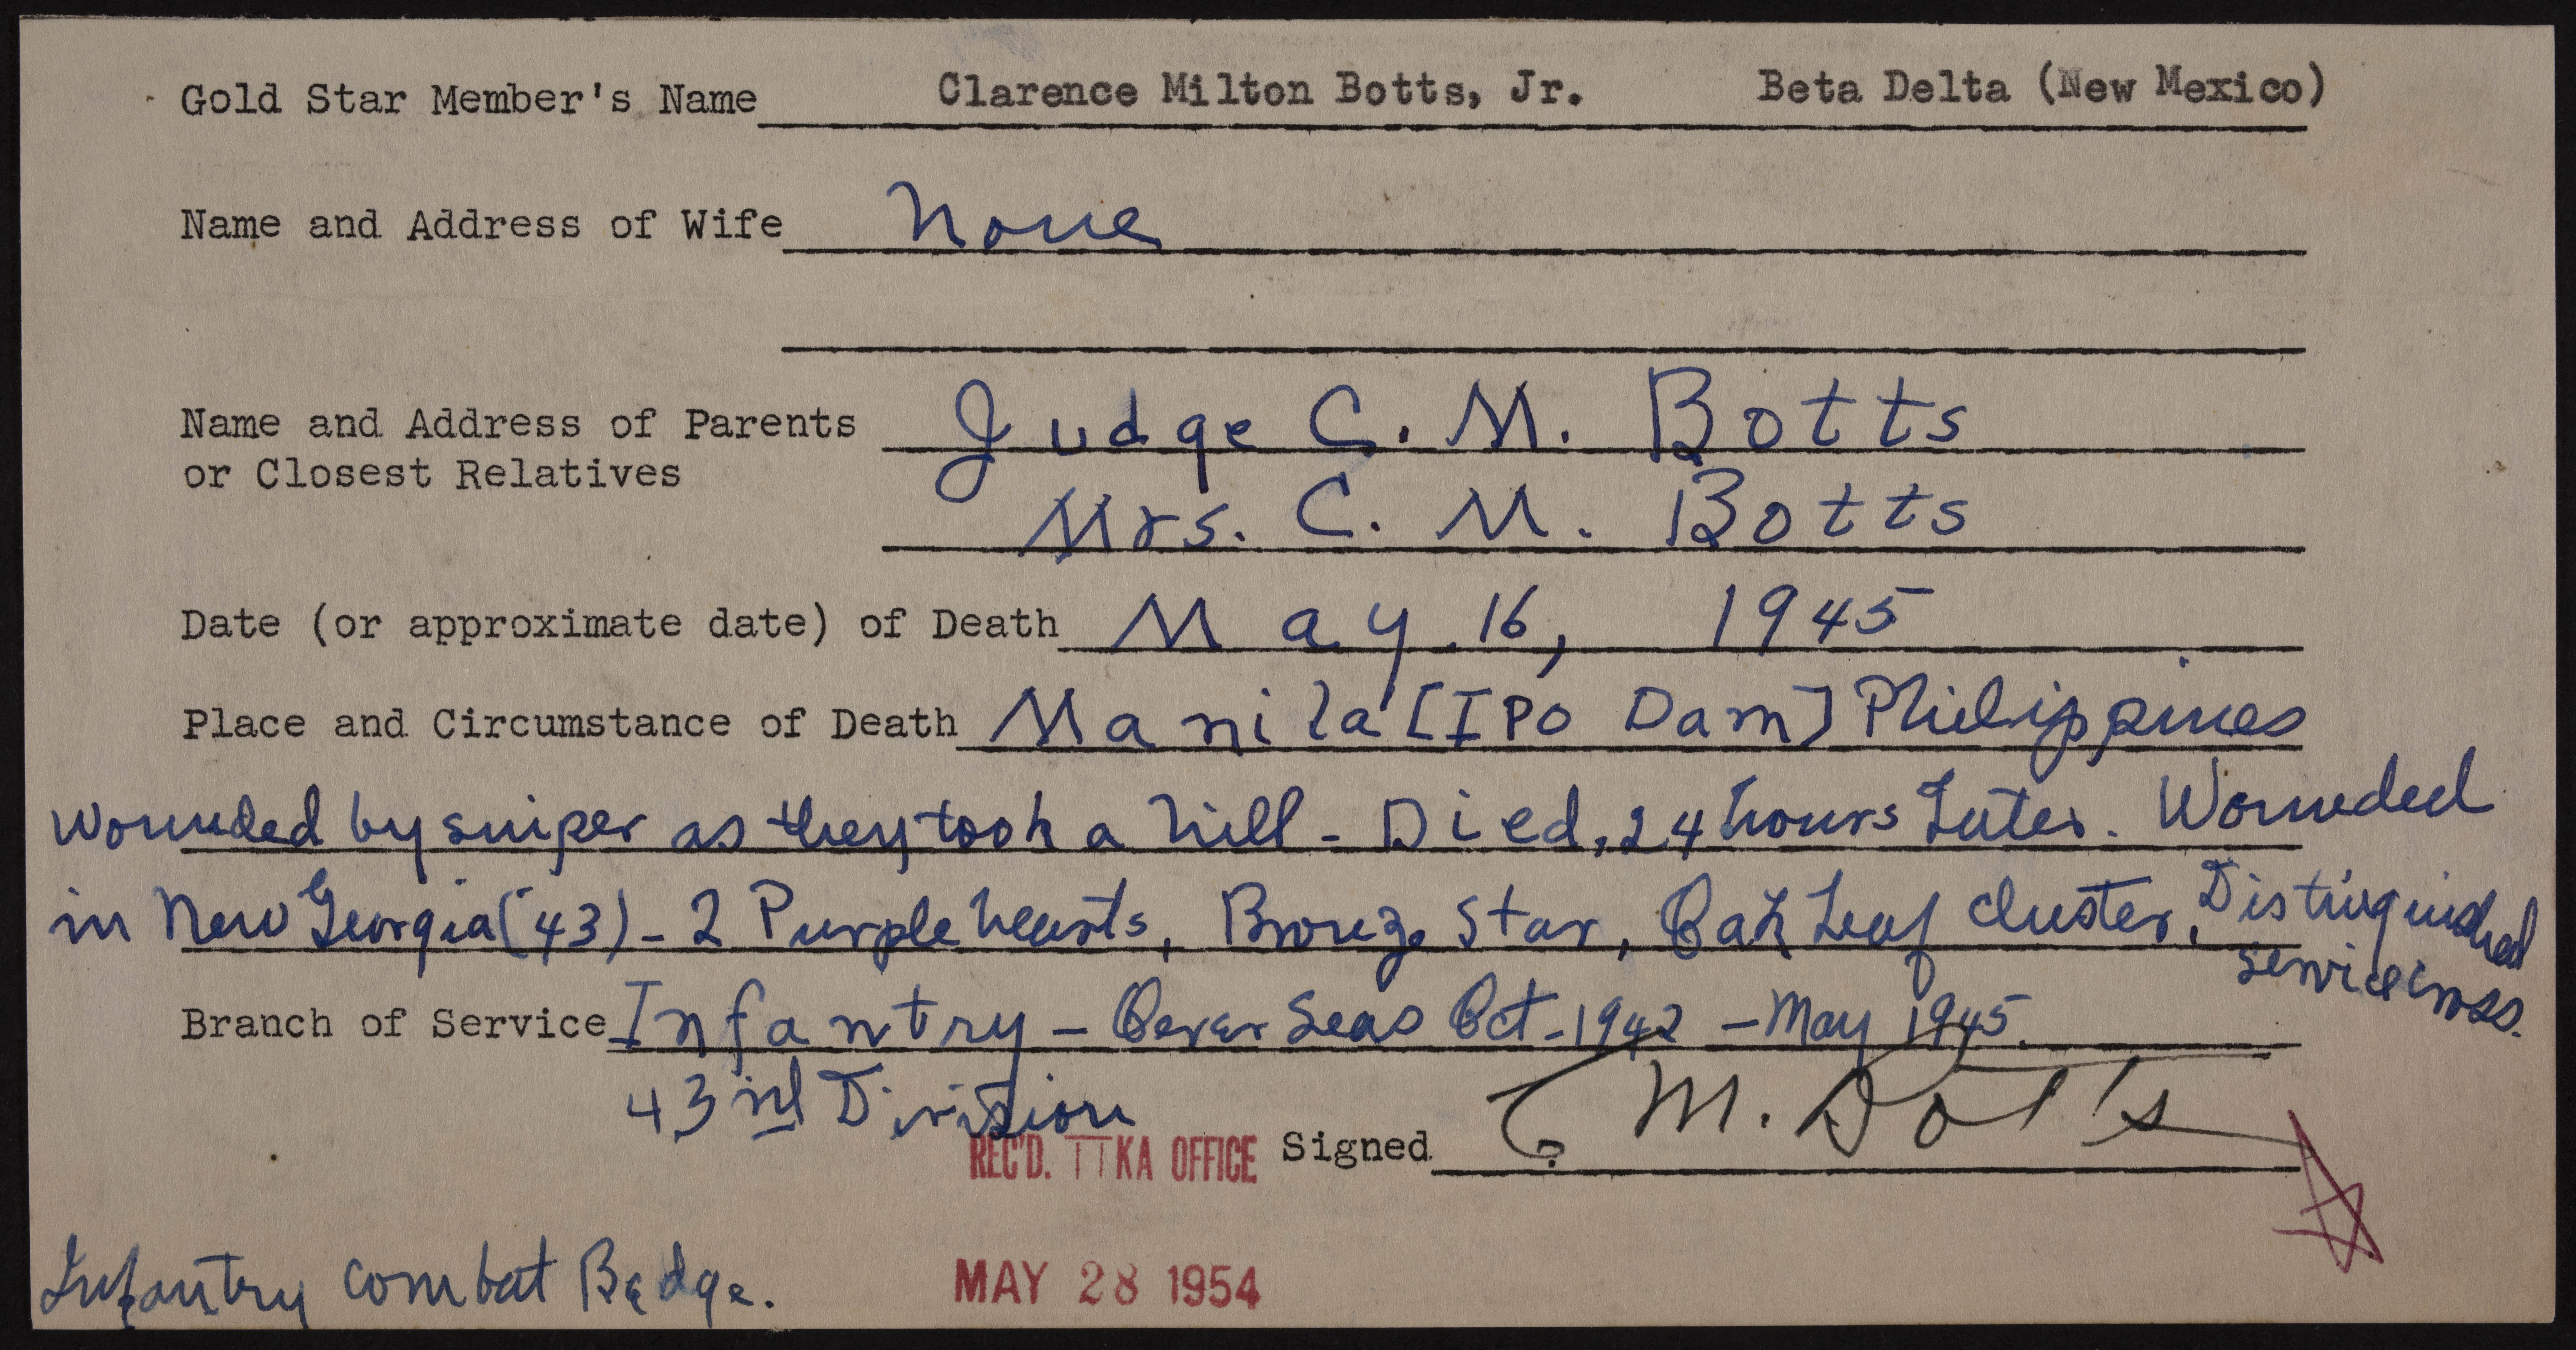 Gold Star Member's Name Clarence Milton Botts, Jr. Beta Delta (New Mexico)
Name and Address of Wife None
Name and Address of Parents Judge C. M. Botts
or Closest Relatives
Mrs. C. M. Botts
Date (or approximate date) of Death May 16, 1945
Place and Circumstance of Death Manila [IPO Dam] Philippines
Wounded by sniper as they took a hill - Died, 24 hours Later. Wounded
in New Georgia ('43) - 2 Purple hearts, Bronze Star, Oak Leaf cluster, Distinguished
service cross.
Branch of Service Infantry - Over Seas Oct - 1942 - May 1945.
43rd Division
REC'D. ΠKA OFFICE Signed C. M. Botts
Infantry combat Badge. MAY 28 1954